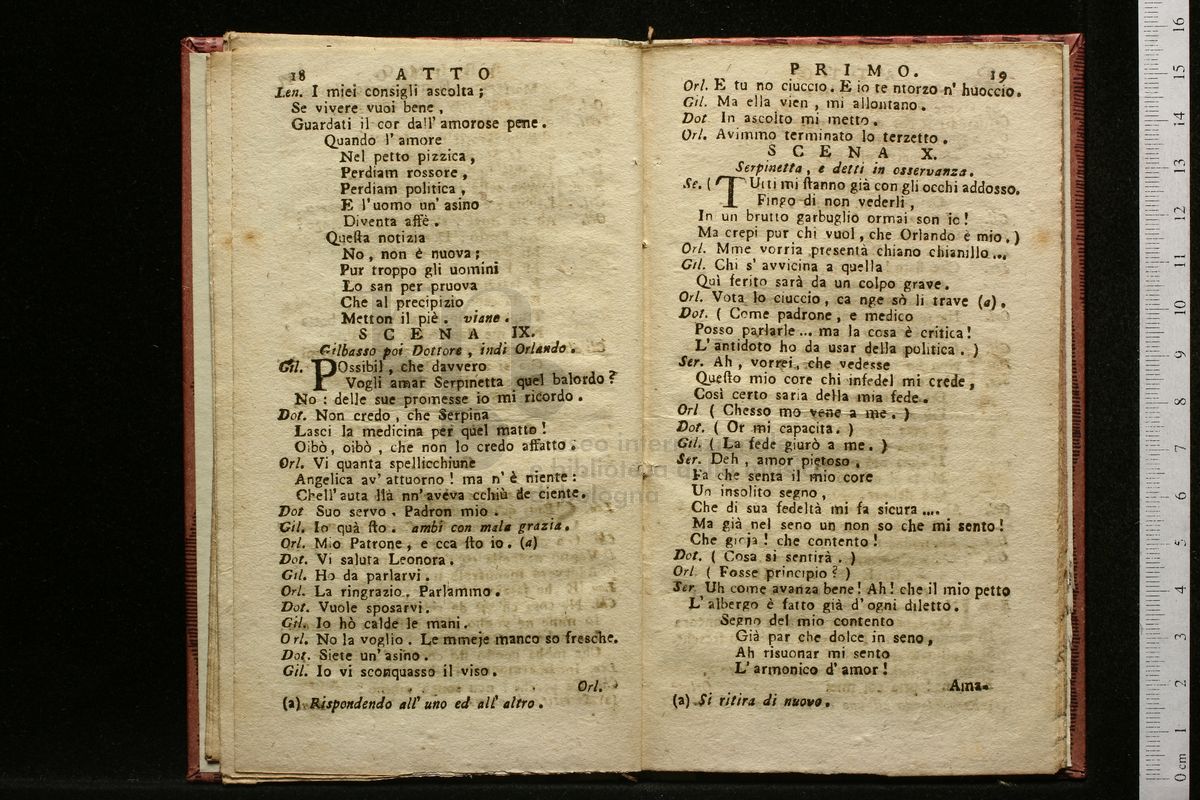 18 ATTO
Len. I miei consigli ascolta;
Se vivere vuoi bene,
Guardati il cor dall' amorose pene.
Quando l'amore
Nel petto pizzica,
Perdiam rossore,
Perdiam politica,
E l'uomo un' asino
Diventa affè.
Questa notizia
No, non è nuova;
Pur troppo gli uomini
Lo san per pruova
Che al precipizio
Metton il piè. viane.
SCENA IX.
Gilbasso poi Dottore, indi Orlando.
Gil. POssibil, che davvero
Vogli amar Serpinetta quel balordo?
No: delle sue promesse io mi ricordo.
Dot. Non credo, che Serpina
Lasci la medicina per quel matto!
Oibò, oibò, che non lo credo affatto.
Orl. Vi quanta spellicchiune
Angelica av' attuorno! ma n'è niente:
Chell' auta llà nn'aveva cchiù de ciente.
Dot Suo servo, Padron mio.
Gil. Io quà sto. ambi con mala grazia.
Orl. Mio Patrone, e cca sto io. (a)
Dot. Vi saluta Leonora.
Gil. Ho da parlarvi.
Orl. La ringrazio. Parlammo.
Dot. Vuole sposarvi.
Gil. Io hò calde le mani.
Orl. No la voglio. Le mmeje manco so fresche.
Dot. Siete un' asino.
Gil. Io vi sconquasso il viso.
Orl.
(a) Rispondendo all' uno ed all' altro.
PRIMO. 19
Orl. E tu no ciuccio. E io te ntorzo n' huoccio.
Gil. Ma ella vien, mi allontano.
Dot In ascolto mi metto.
Orl. Avimmo terminato lo terzetto.
SCENA X.
Serpinetta, e detti in osservanza.
Se. (TUtti mi stanno già con gli occhi addosso.
Fingo di non vederli,
In un brutto garbuglio ormai son io!
Ma crepi pur chi vuol, che Orlando è mio.)
Orl. Mme vorria presentà chiano chianillo...
Gil. Chi s' avvicina a quella
Quì ferito sarà da un colpo grave.
Orl. Vota lo ciuccio, ca nge sò li trave (a).
Dot. (Come padrone, e medico
Posso parlarle... ma la cosa è critica!
L'antidoto ho da usar della politica.)
Ser. Ah, vorrei, che vedesse
Questo mio core chi infedel mi crede,
Così certo saria della mia fede.
Orl (Chesso mo vene a me.)
Dot. (Or mi capacita.)
Gil. (La fede giurò a me.)
Ser. Deh, amor pietoso,
Fa che senta il mio core
Un insolito segno,
Che di sua fedeltà mi fa sicura....
Ma già nel seno un non so che mi sento!
Che gioja! che contento!
Dot. (Cosa si sentirà.)
Orl (Fosse principio?)
Ser Uh come avanza bene! Ah! che il mio petto
L'albergo è fatto già d'ogni diletto.
Segno del mio contento
Già par che dolce in seno,
Ah risuonar mi sento
L'armonico d'amor!
Ama-
(a) Si ritira di nuovo.